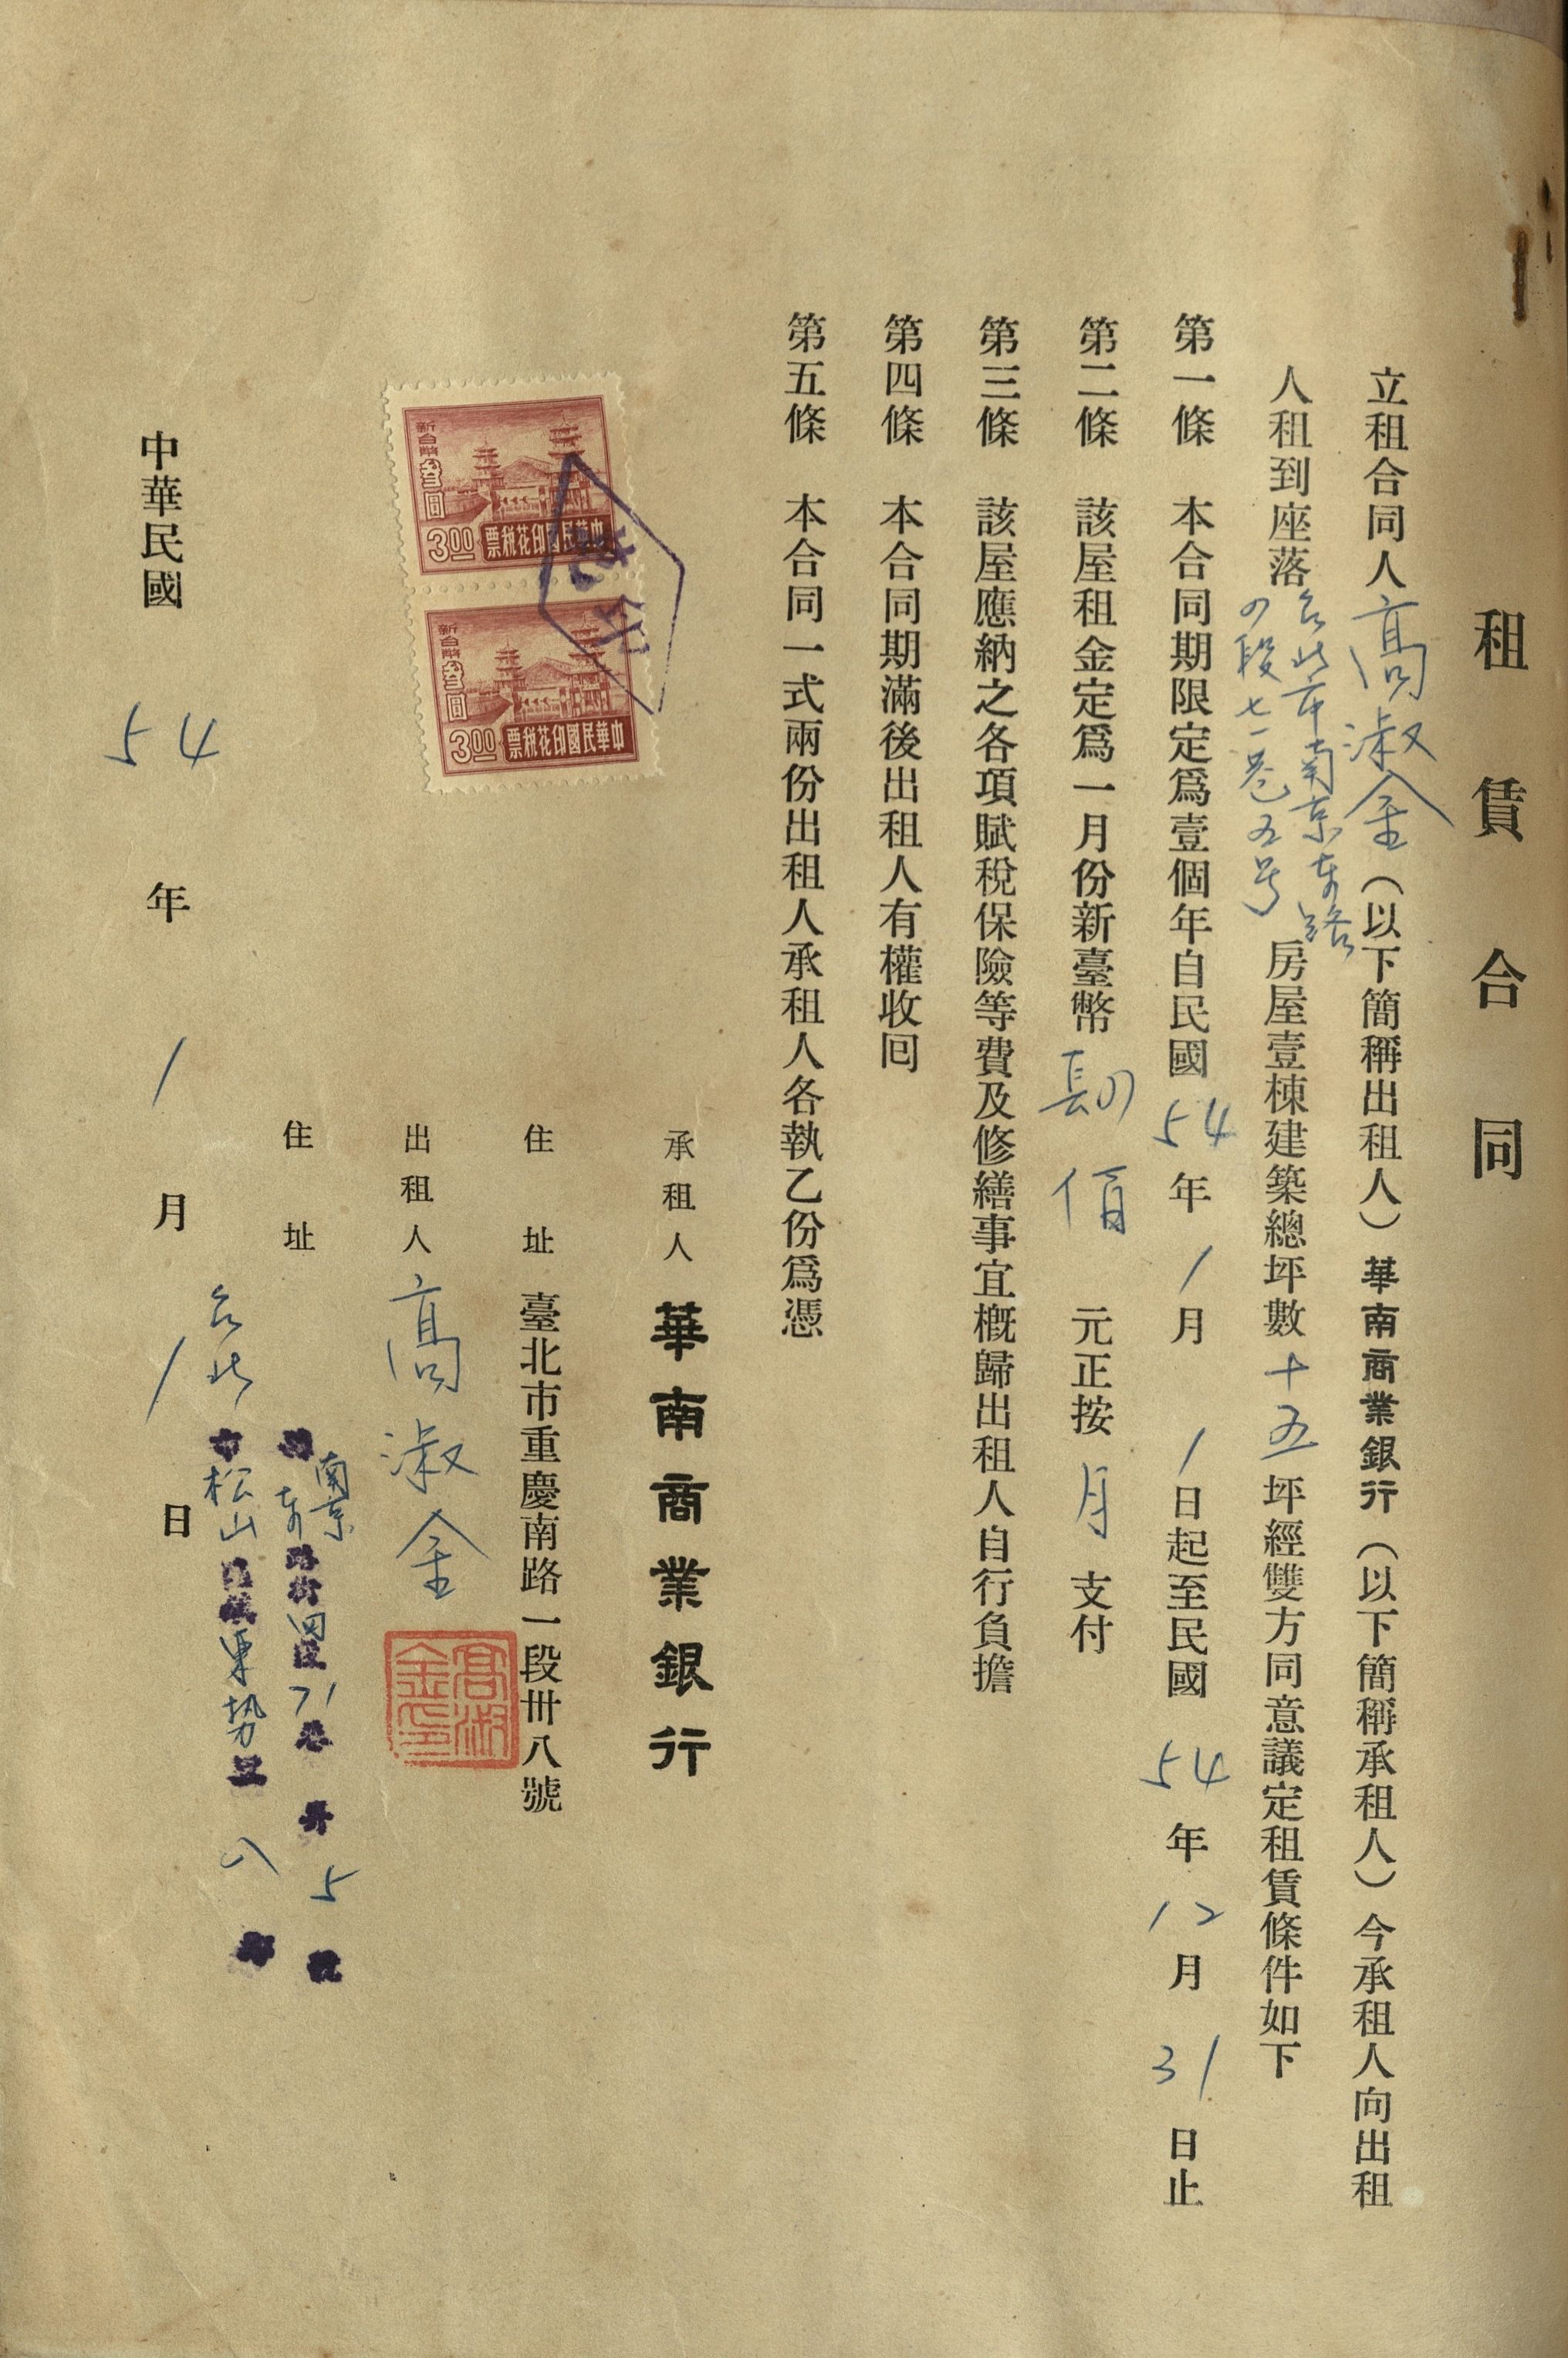 租賃合同
立租合同人高淑金（以下簡稱出租人）華南商業銀行（以下簡稱承租人）今承租人向出租
人租到座落台北市南京東路の段七一巷五号房屋壹棟建築總坪數十五坪經雙方同意議定租賃條件如下
第一條 本合同期限定爲壹個年自民國54年1月1日起至民國54年12月31日止
第二條 該屋租金定爲一月份新臺幣 佰元正按月支付
第三條 該屋應納之各項賦稅保險等費及修繕事宜概歸出租人自行負擔
第四條 本合同期滿後出租人有權收囘
第五條 本合同一式兩份出租人承租人各執乙份爲憑
承租人 華南商業銀行
住址 臺北市重慶南路一段卅八號
出租人 高淑金
高淑金印
住址 台北市松山區東勢里八鄰
南京東路街四段71巷弄5號
新台幣 叁圓
3.00 中華民國印花稅票
新台幣 叁圓
3.00 中華民國印花稅票
中華民國54年1月1日